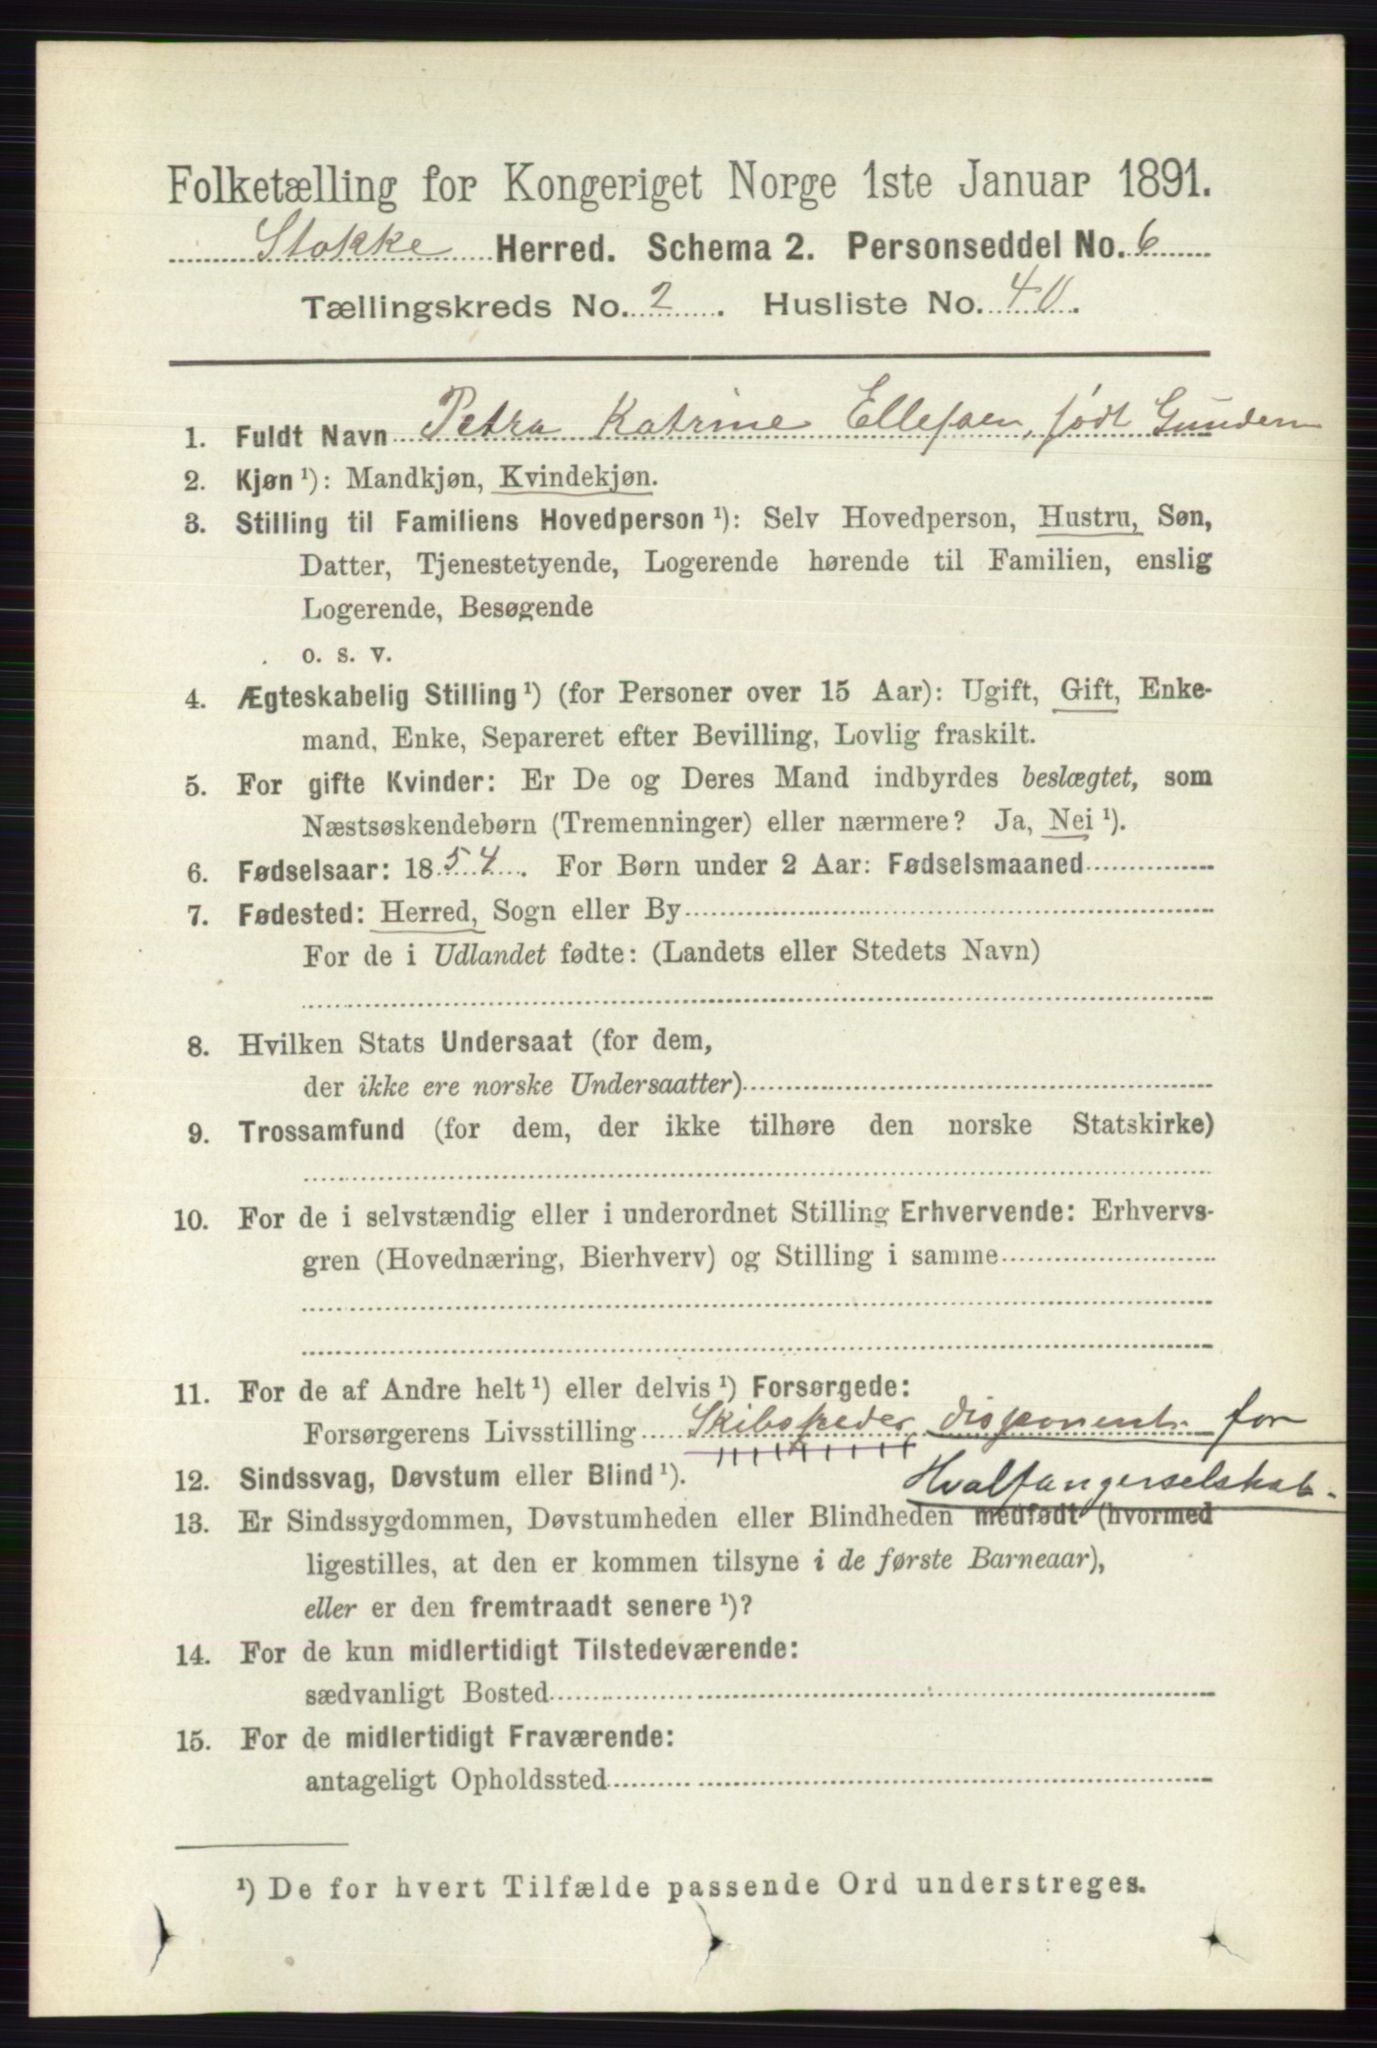 Folketælling for Kongeriget Norge 1ste Januar 1891.
Stokke Herred. Schema 2. Personseddel No. 6
Tællingskreds No. 2. Husliste No. 40.
1. Fuldt Navn Petra Katrine Ellefsen, født Gundern
2. Kjøn ¹): Mandkjøn, Kvindekjøn.
3. Stilling til Familiens Hovedperson ¹): Selv Hovedperson, Hustru, Søn,
Datter, Tjenestetyende, Logerende hørende til Familien, enslig
Logerende, Besøgende
o. s. v.
4. Ægteskabelig Stilling ¹) (for Personer over 15 Aar): Ugift, Gift, Enke-
mand, Enke, Separeret efter Bevilling, Lovlig fraskilt.
5. For gifte Kvinder: Er De og Deres Mand indbyrdes beslægtet, som
Næstsøskendebørn (Tremenninger) eller nærmere? Ja, Nei ¹).
6. Fødselsaar: 1854. For Børn under 2 Aar: Fødselsmaaned
7. Fødested: Herred, Sogn eller By
For de i Udlandet fødte: (Landets eller Stedets Navn)
8. Hvilken Stats Undersaat (for dem,
der ikke ere norske Undersaatter)
9. Trossamfund (for dem, der ikke tilhøre den norske Statskirke)
10. For de i selvstændig eller i underordnet Stilling Erhvervende: Erhvervs-
gren (Hovednæring, Bierhverv) og Stilling i samme
11. For de af Andre helt ¹) eller delvis ¹) Forsørgede:
Forsørgerens Livsstilling Skibsreder, disponent for
12. Sindssvag, Døvstum eller Blind ¹). Hvalfangerselskab.
13. Er Sindssygdommen, Døvstumheden eller Blindheden medfødt (hvormed
ligestilles, at den er kommen tilsyne i de første Barneaar),
eller er den fremtraadt senere ¹)?
14. For de kun midlertidigt Tilstedeværende:
sædvanligt Bosted
15. For de midlertidigt Fraværende:
antageligt Opholdssted
¹) De for hvert Tilfælde passende Ord understreges.